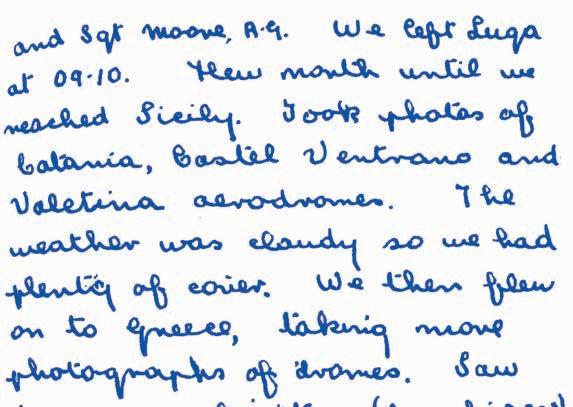 and Sgt Moore, A.G. We left Luqa
at 09.10. Flew north until we
reached Sicily. Took photos of
Catania, Castel Ventrano and
Valetina aerodromes. The
weather was cloudy so we had
plenty of cover. We then flew
on to Greece, taking more
photographs of 'dromes. Saw